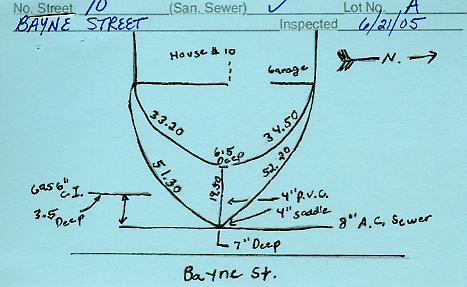 No. Street 10 (San. Sewer) ✓ Lot No. A
BAYNE STREET Inspected 6/21/05
House # 10
Garage
N.
33.20
34.50
6.5
Deep
51.30
52.20
19.50
6" C.I.
3.5
Deep
4" P.V.C.
4" saddle
8" A.C. Sewer
7" Deep
Bayne St.